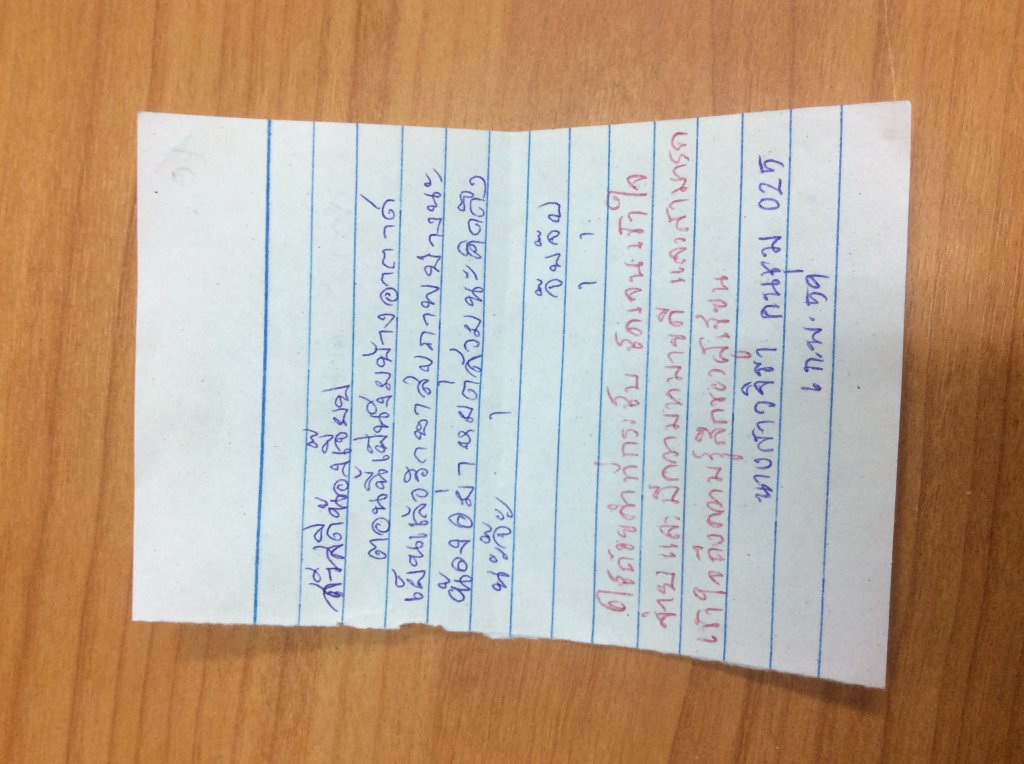 สวัสดีน้องเจี๊ยบ
ตอนนี้เป็นไงมบ้างอากาศ
เย็นแล้วรักษาสุขภาพบ้างนะ
น้องอย่าหยุดสวมนะคิดถึง
นะจ๊ะ
จ๊บจ๊บ
ใช้ถ้อยคำที่กระชับ ชัดเจนเข้าใจ
ง่าย และ มีความหมายดี และสามารถ
เข้าใจถึงความรู้สึกของผู้เขียน
นางสาววิชา 025